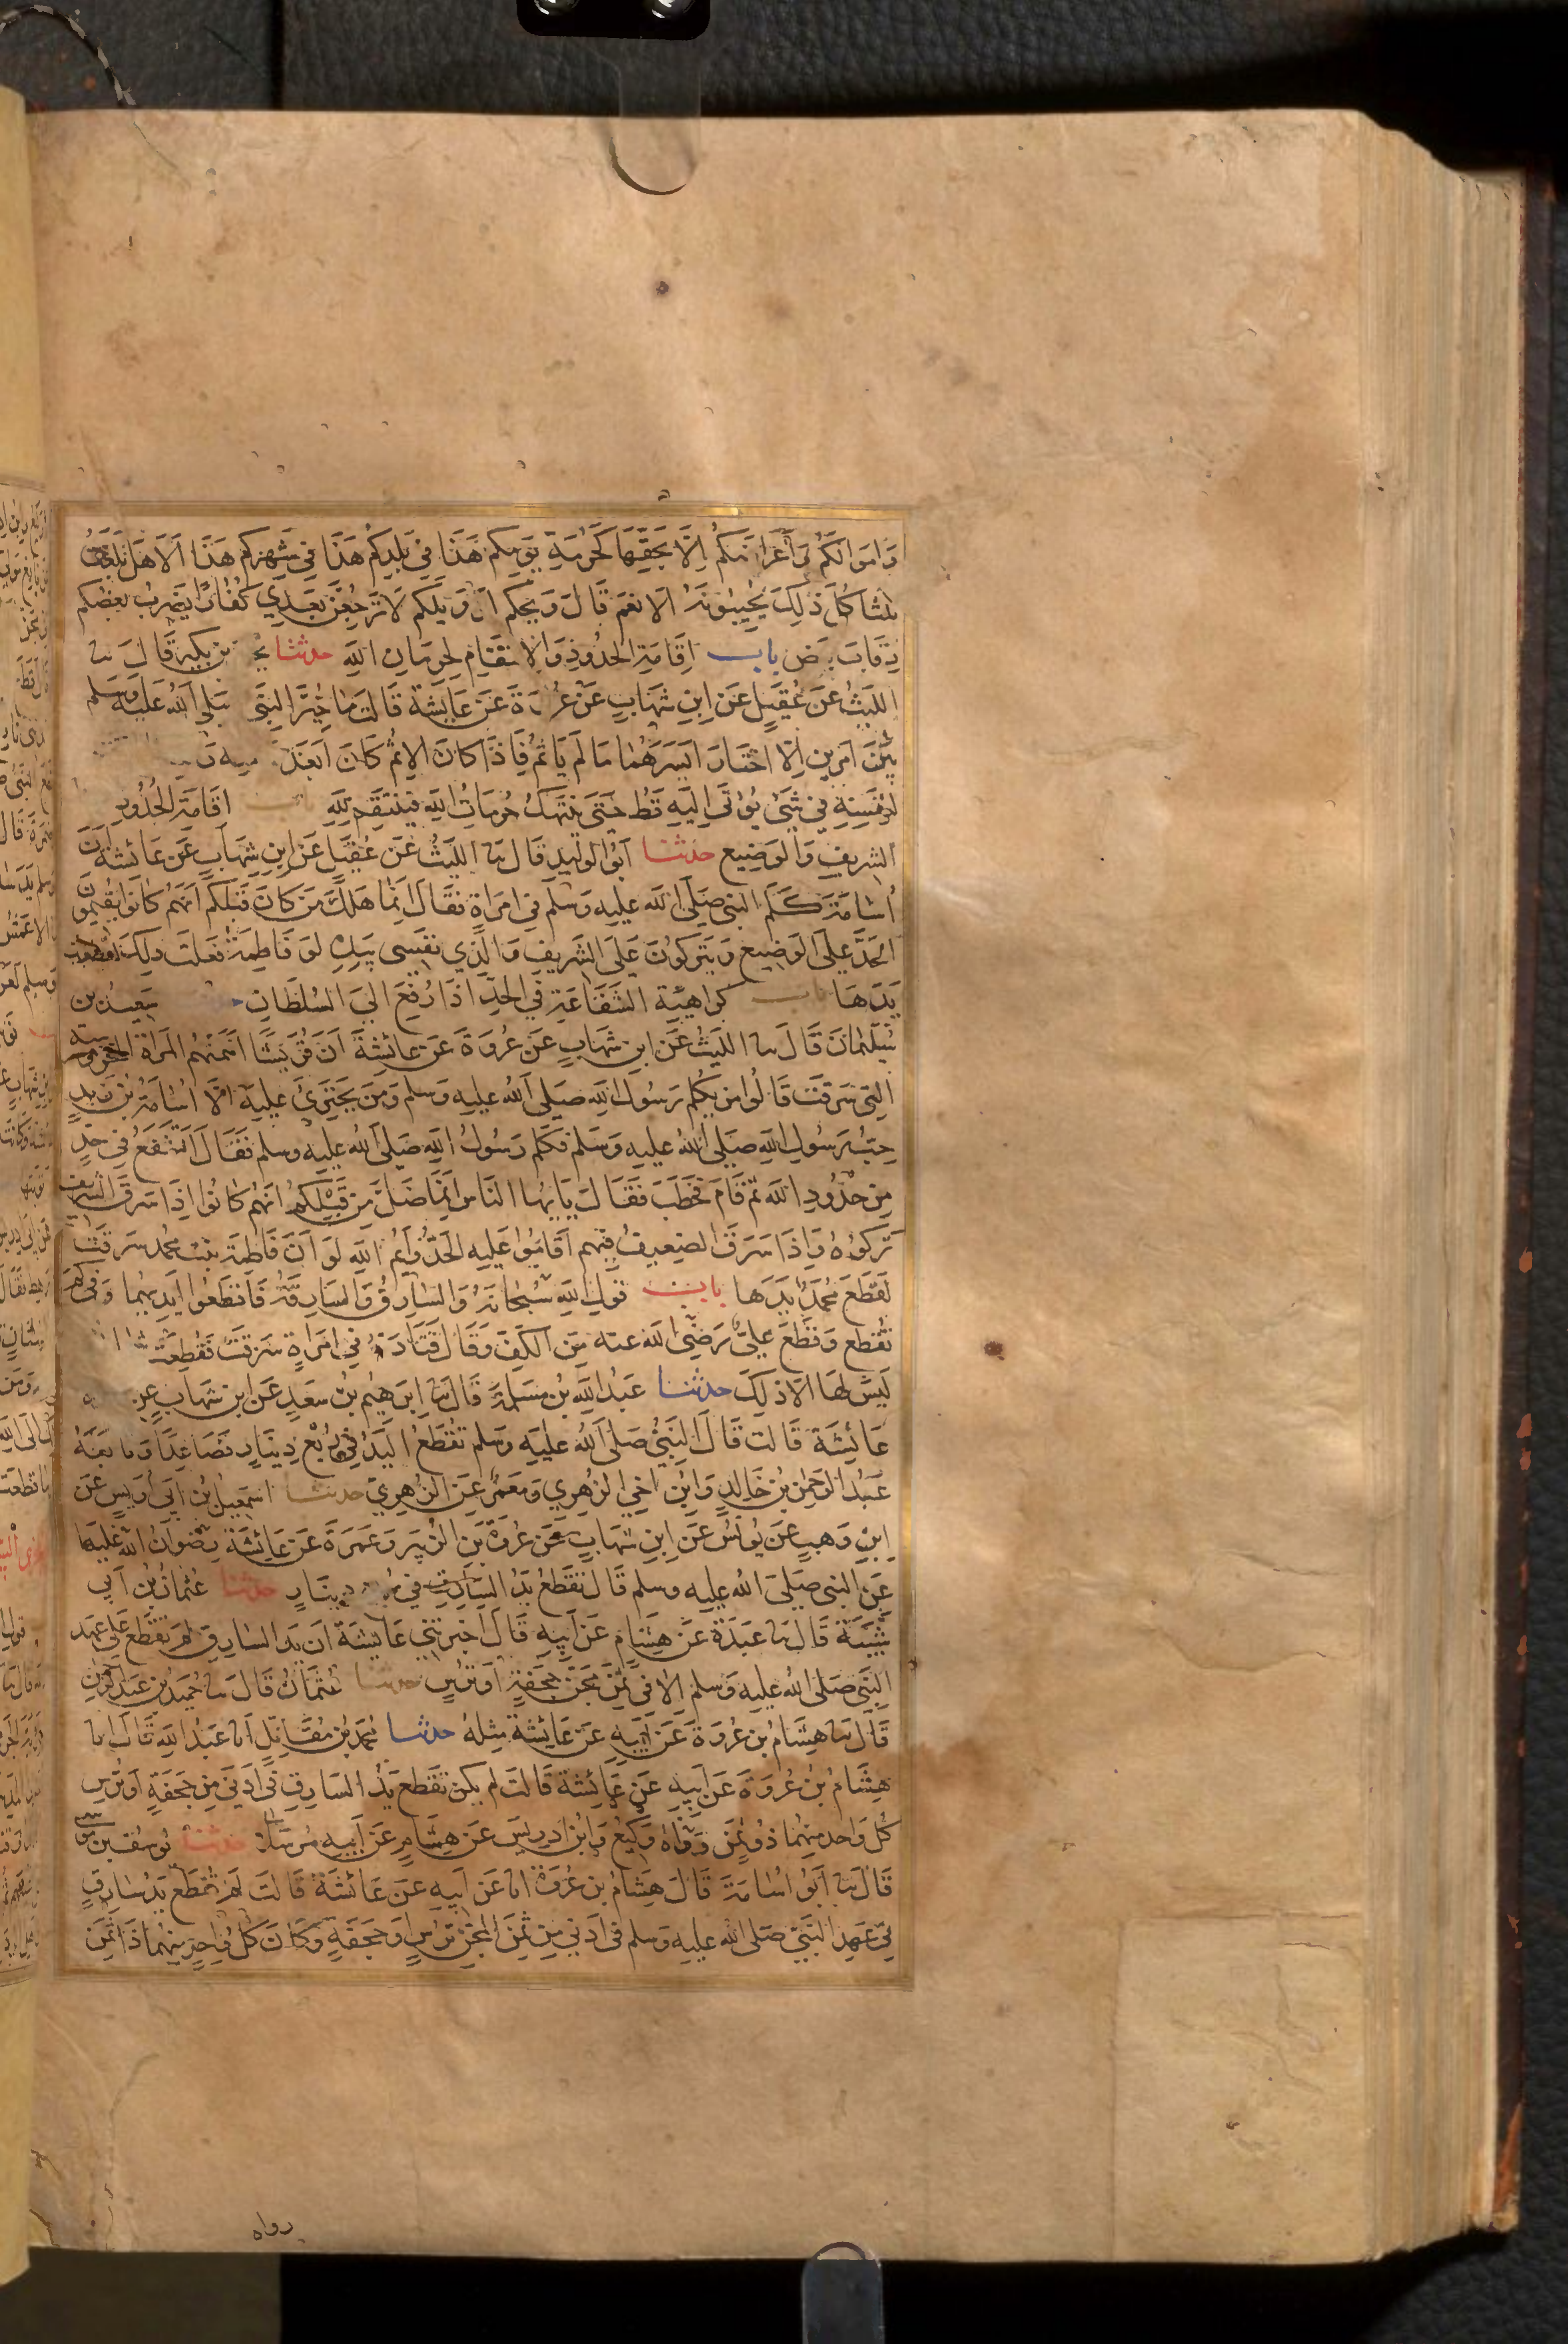 وَامَوالَكُم وَأَعْرَاضَكُم اِلَّا بِحَقِّهَا كَحُرمَةِ يَومِكُم هَذَا فِي بَلَدِكُم هَذَا فِي شَهرِكُم هَذَا اَلَا هَل بَلَّغتُ
ثلثا كُلُّ ذَلِكَ يُجِيبُونَهُ اَلَا نَعَم قَالَ وَيحَكُم اَو وَيلَكُم لَا تَرجِعُنَّ بَعدِي كُفَّارًا يَضرِبُ بَعضُكُم
رِقَابَ بَعض باب اِقَامَةِ الحُدُودِ وَالِانتِقَامِ لِحُرمَاتِ اللَّهِ حدثنا بن بكير قَالَ نا
اللَيثُ عَن عُقَيلٍ عَن اِبنِ شِهَابٍ عَن عُروَةَ عَن عَايِشَةَ قَالَت مَا خُيِّرَ النَّبي صَلى اللَّهُ عَلَيهِ وَسَلم
بَينَ اَمرَينِ اِلَّا اختَارَ اَيسَرَهُمَا مَا لَم يَاثَم فَاِذَا كَانَ الِاثمُ كَانَ اَبعَدَ
لِنَفسِهِ فِي شَئ يُؤتَى اِلَيهِ قَط حَتَّى تُنتَهَكُ حُرمَاتُ اللَّهِ فَينتَقِم لِلَّهِ باب اقَامَةِ الحُدُودِ
الشَرِيفِ وَالوَضِيعِ حدثنا اَبُو الوَلِيدِ قَالَ نا اللَيثُ عَن عُقَيلٍ عَن ابنِ شِهَابٍ عَن عَائشَةَ اَنَّ
اُسَامَةَ كَلَّمَ النَبي صَلَّى اللَّه عليه وَسَلَّمَ فِي امرَاةٍ فَقَالَ اِنَّمَا هَلَكَ مَن كَانَ قَبلَكُم اَنَّهُم كَانُوا يُقِيمُونَ
الحَدَّ عَلَى الوَضِيعِ وَيَترُكُونَ عَلَى الشَرِيفِ وَالَّذِي نَفسِي بِيَدِهِ لَو فَاطِمَةُ فَعَلَت ذلِكَ لَقَطَعتُ
يَدَهَا باب كراهية الشَفَاعَةِ فِي الحَدِّ اذَا رُفِعَ اِلَى السُلطَانِ سَعِيدُ بن
سُلَيمَانَ قَالَ نا اللَيثُ عَن ابنِ شِهَابٍ عَن عُروَةَ عَن عَائِشَةَ اَنَّ قُرَيشًا اَهَمَّتهُم المَرأَةُ المخزومية
الَّتِي سَرَقَت قَالُوا مَن يُكَلِّم رَسُولَ اللَّهِ صَلى اللهُ عليه وَسلم وَمَن يَجتَرِئُ عَلَيهِ اِلَّا اُسَامَةُ بنُ زَيدٍ
حِبُّ رَسُولِ اللَّهِ صَلى اللهُ عليه وَسَلم فَكَلَّمَ رَسُولَ اللَّهِ صَلى اللهُ عليه وَسلم فَقَالَ اَتَشفَعُ فِي حَدٍّ
مِن حُدُودِ اللَّه ثُمَّ قَامَ فَخَطَبَ فَقَالَ يَايُّهَا النَّاس اِنَّمَا ضَلَّ مَن قَبلَكُم اَنَّهُم كَانُوا اِذَا سَرَقَ الشَريف
تَرَكُوهُ وَاِذَا سَرَقَ الضعِيفُ فِيهم اَقَامُوا عَلَيهِ الحَدَّ وَايمُ اللَّهِ لَو اَنَّ فَاطِمَةَ بنت مُحمد سَرَقَت
لَقَطَعَ مُحَمَّدٌ يَدَهَا باب قَولِ اللَّهِ سُبحَانَهُ وَالسَارِقُ وَالسَارِقَةُ فَاقطَعُوا اَيدِيَهُمَا وَفِي كَم
تُقطَع وَقَطَعَ عَلِيٌّ رَضِيَ اللَّه عنه مِنَ الكَفِّ وَقَالَ قَتَادَةُ فِي امرَاةٍ سَرَقَت فَقُطِعَت شمالها
لَيسَ لَهَا اِلَّا ذَلِكَ حدثنا عَبدُ اللَّهِ بن مَسلَمَةَ قَالَ نا اِبرَهِيم بنُ سَعدٍ عَن ابنِ شهَابٍ عن
عَائِشَة قَالت قَالَ النَبِيُّ صَلى اللهُ عليه وَسلم تُقطَعُ اليَدُ فِي رُبعِ دِينَارٍ فَصَاعِدًا وَتابَعَهُ
عَبدُ الرَحمَنِ بن خَالِدٍ وَابنُ اَخِي الزُهري وَمَعمَرٌ عَن الزُهرِيّ حدثنا اسمَعِيلُ بن اَبِي اُوَيسٍ عَن
ابنِ وَهبٍ عَن يُونُسَ عَن اِبنِ شهَابٍ عَن عُروَةَ بنِ الزُبَيرِ وَعَمرَةَ عَن عَائِشَةَ رِضوَانُ اللَّه عَلَيهَا
عَن النبي صَلى الله عليه وسلم قَالَ تُقطَعُ يَدُ السَارِقِ فِي ربع دينَارٍ حدثنا عُثمَانُ بن اَبي
شَيبَةَ قَالَ نا عَبدَة عَن هِشَامٍ عَن اَبِيهِ قَالَ اَخبَرَتنِي عَائِشَةُ اَن يَدَ السَارِقِ لَم تُقطَع عَلَى عَهدِ
النَبِي صَلى الله عَليهِ وَسلم اِلَّا فِي ثَمَنِ مِجَنٍّ حَجَفَةٍ اَو تُرسٍ حدثنا عُثمَانُ قَالَ نا حُمَيدُ بنِ عَبدِ الرَحمنِ
قَالَ نا هِشَامُ بن عُروَةَ عَن اَبِيهِ عَن عَائِشَةَ مِثلَهُ حدثنا مُحَمدُ بنُ مُقَاتِلٍ انا عَبدُ اللَّهِ قَالَ انا
هِشَامُ بنُ عُروَةَ عَن اَبِيهِ عَن عَائِشَةَ قَالَت لَم يَكُن تُقطَع يَدُ السَارِقِ فِي اَدنَى مِن حَجَفَةٍ اَو تُرسٍ
كُل وَاحد مِنهُمَا ذُو ثَمَن رَوَاهُ وَكِيعٌ وَابنُ ادرِيسَ عَن هِشَامٍ عَن اَبِيهِ مُرسَلًا حدثنا يُوسُف بن موسى
قَالَ نا اَبُو اُسَامَةَ قَالَ هِشَامُ بن عُروَةَ انا عَن اَبِيهِ عَن عَائِشَةَ قَالَت لَم تُقطَع يَدُ سَارِقٍ
فِي عَهدِ النَّبِيِّ صَلى الله عليه وَسلم فِي اَدنَى مِن ثَمَنِ المِجَنِّ تُرسٍ اَو حَجَفَةٍ وَكَانَ كُلُّ وَاحِدٍ مِنهُمَا ذَا ثَمَنٍ
رواه